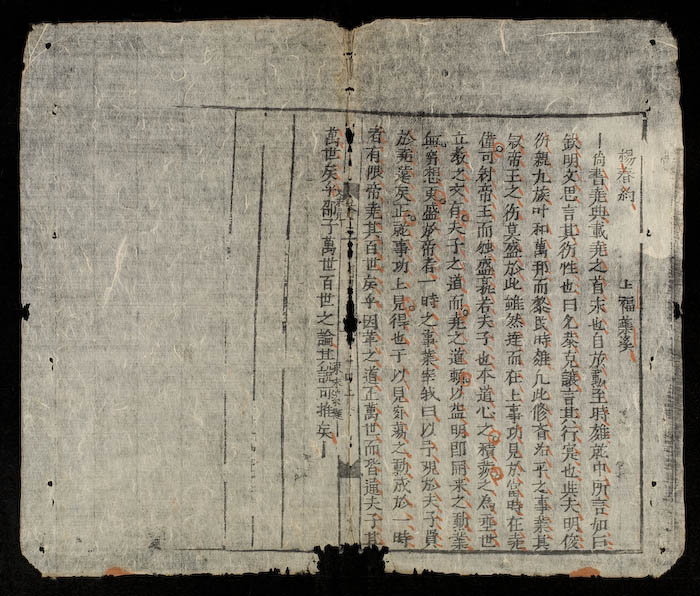 楊春約 上福
尚書堯典載堯之首末也自放勳至時雍其中所言如曰
欽明文思言其彷性也曰允恭克讓言其行實也與夫明俊
彷親九族叶和萬邦而黎民時雍凡此修齊治平之事業其
叔帝王之彷莫盛於此雖然達而在上事功見於當時在堯
僅可對帝王而独盛焉若夫子也本道心之積之為垂世
立教之文有夫子之道而堯之道賴以益明即開來之勳業
無窮想更盛於帝者一時之事業宰我曰以予观於夫子賢
於堯舜矣正就事功上見得也于以見巍蕩之勳成於一時
者有限帝堯其百世矣乎因革之道正萬世而皆通夫子其
萬世矣乎邵子萬世百世之論其可推矣